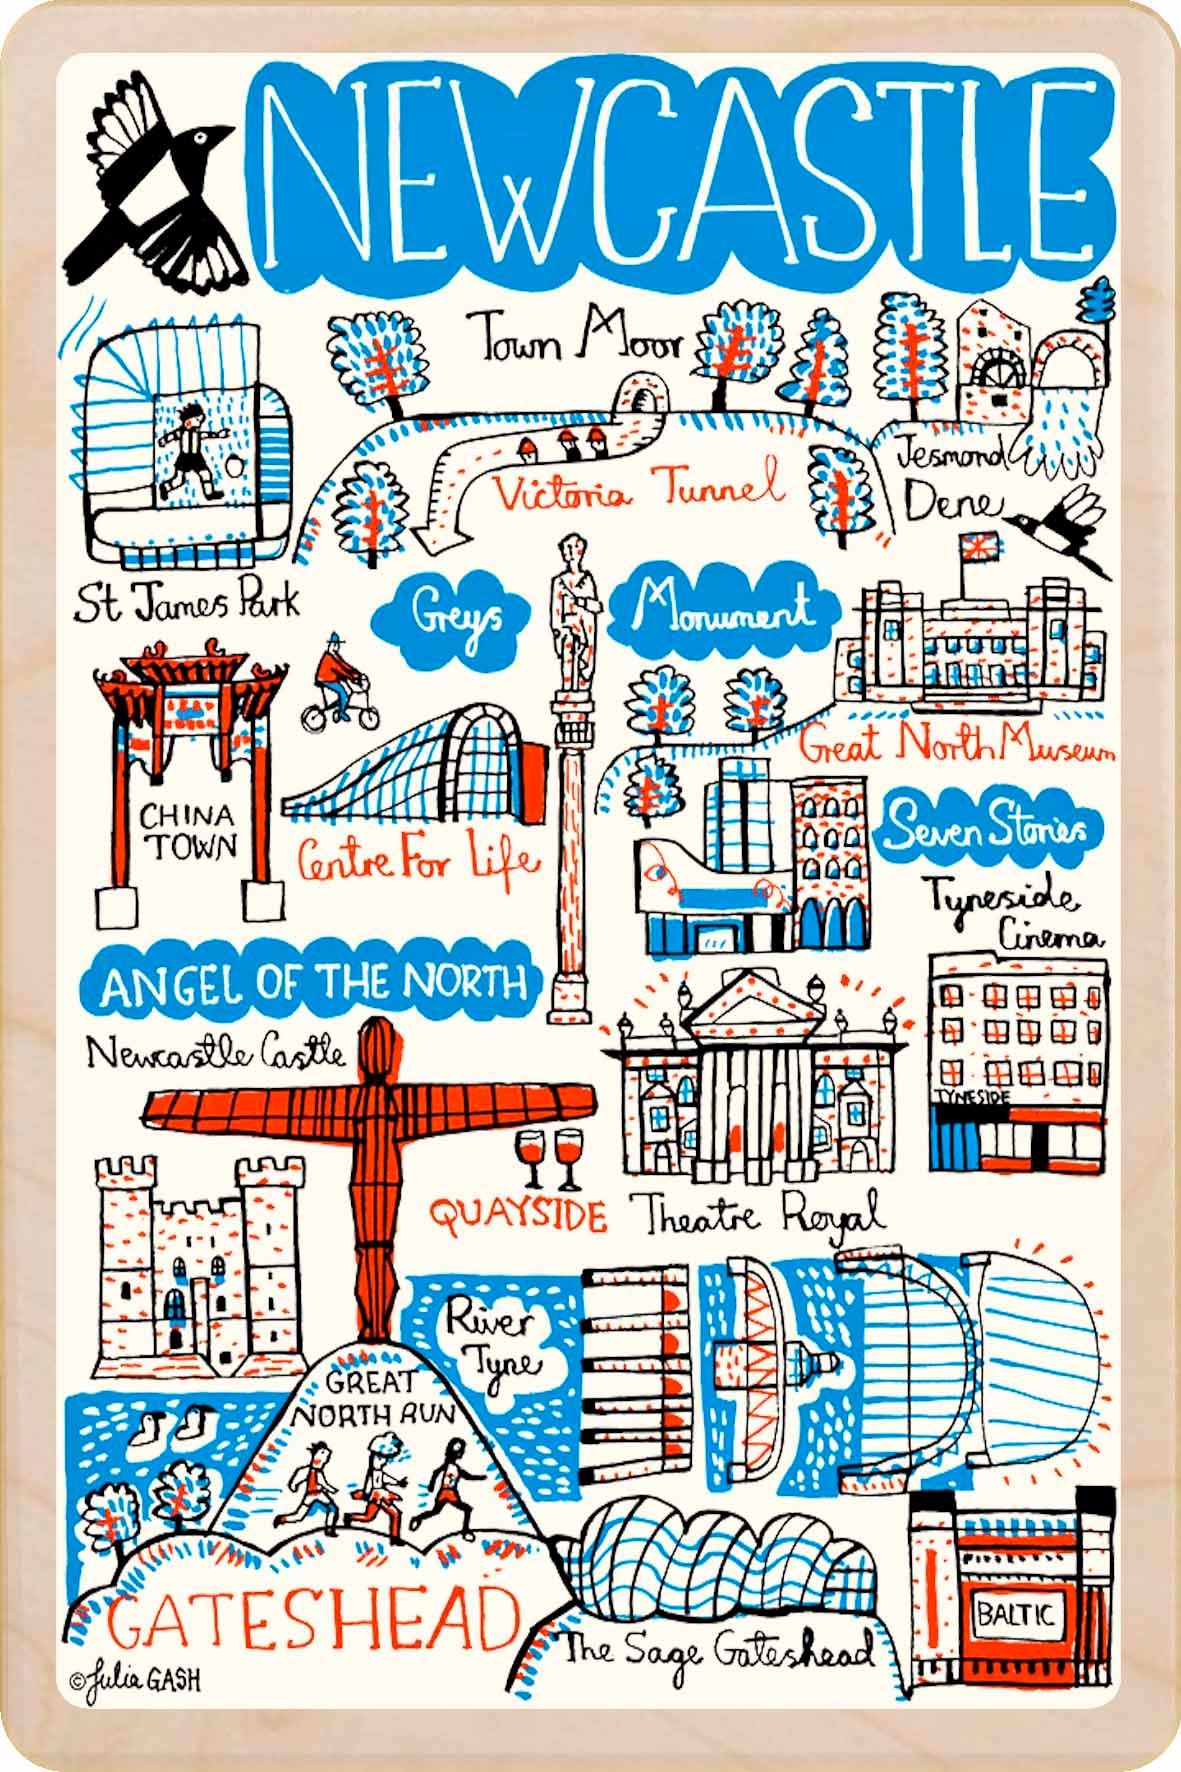 NEWCASTLE
Town Moor
Victoria Tunnel
Jesmond
Dene
St James Park
Greys
Monument
Great North Museum
CHINA
TOWN
Centre For Life
Seven Stories
Tyneside
Cinema
ANGEL OF THE NORTH
Newcastle Castle
TYNESIDE
QUAYSIDE
Theatre Royal
River
Tyne
GREAT
NORTH RUN
GATESHEAD
The Sage Gateshead
BALTIC
©Julia GASH